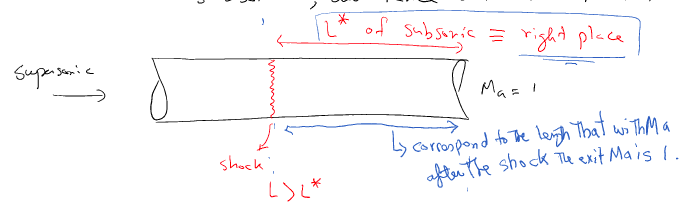 L* of subsonic ≡ right place
Supersonic
Ma = 1
shock
L > L*
↳ correspond to the length that with Ma
after the shock the exit Ma is 1.